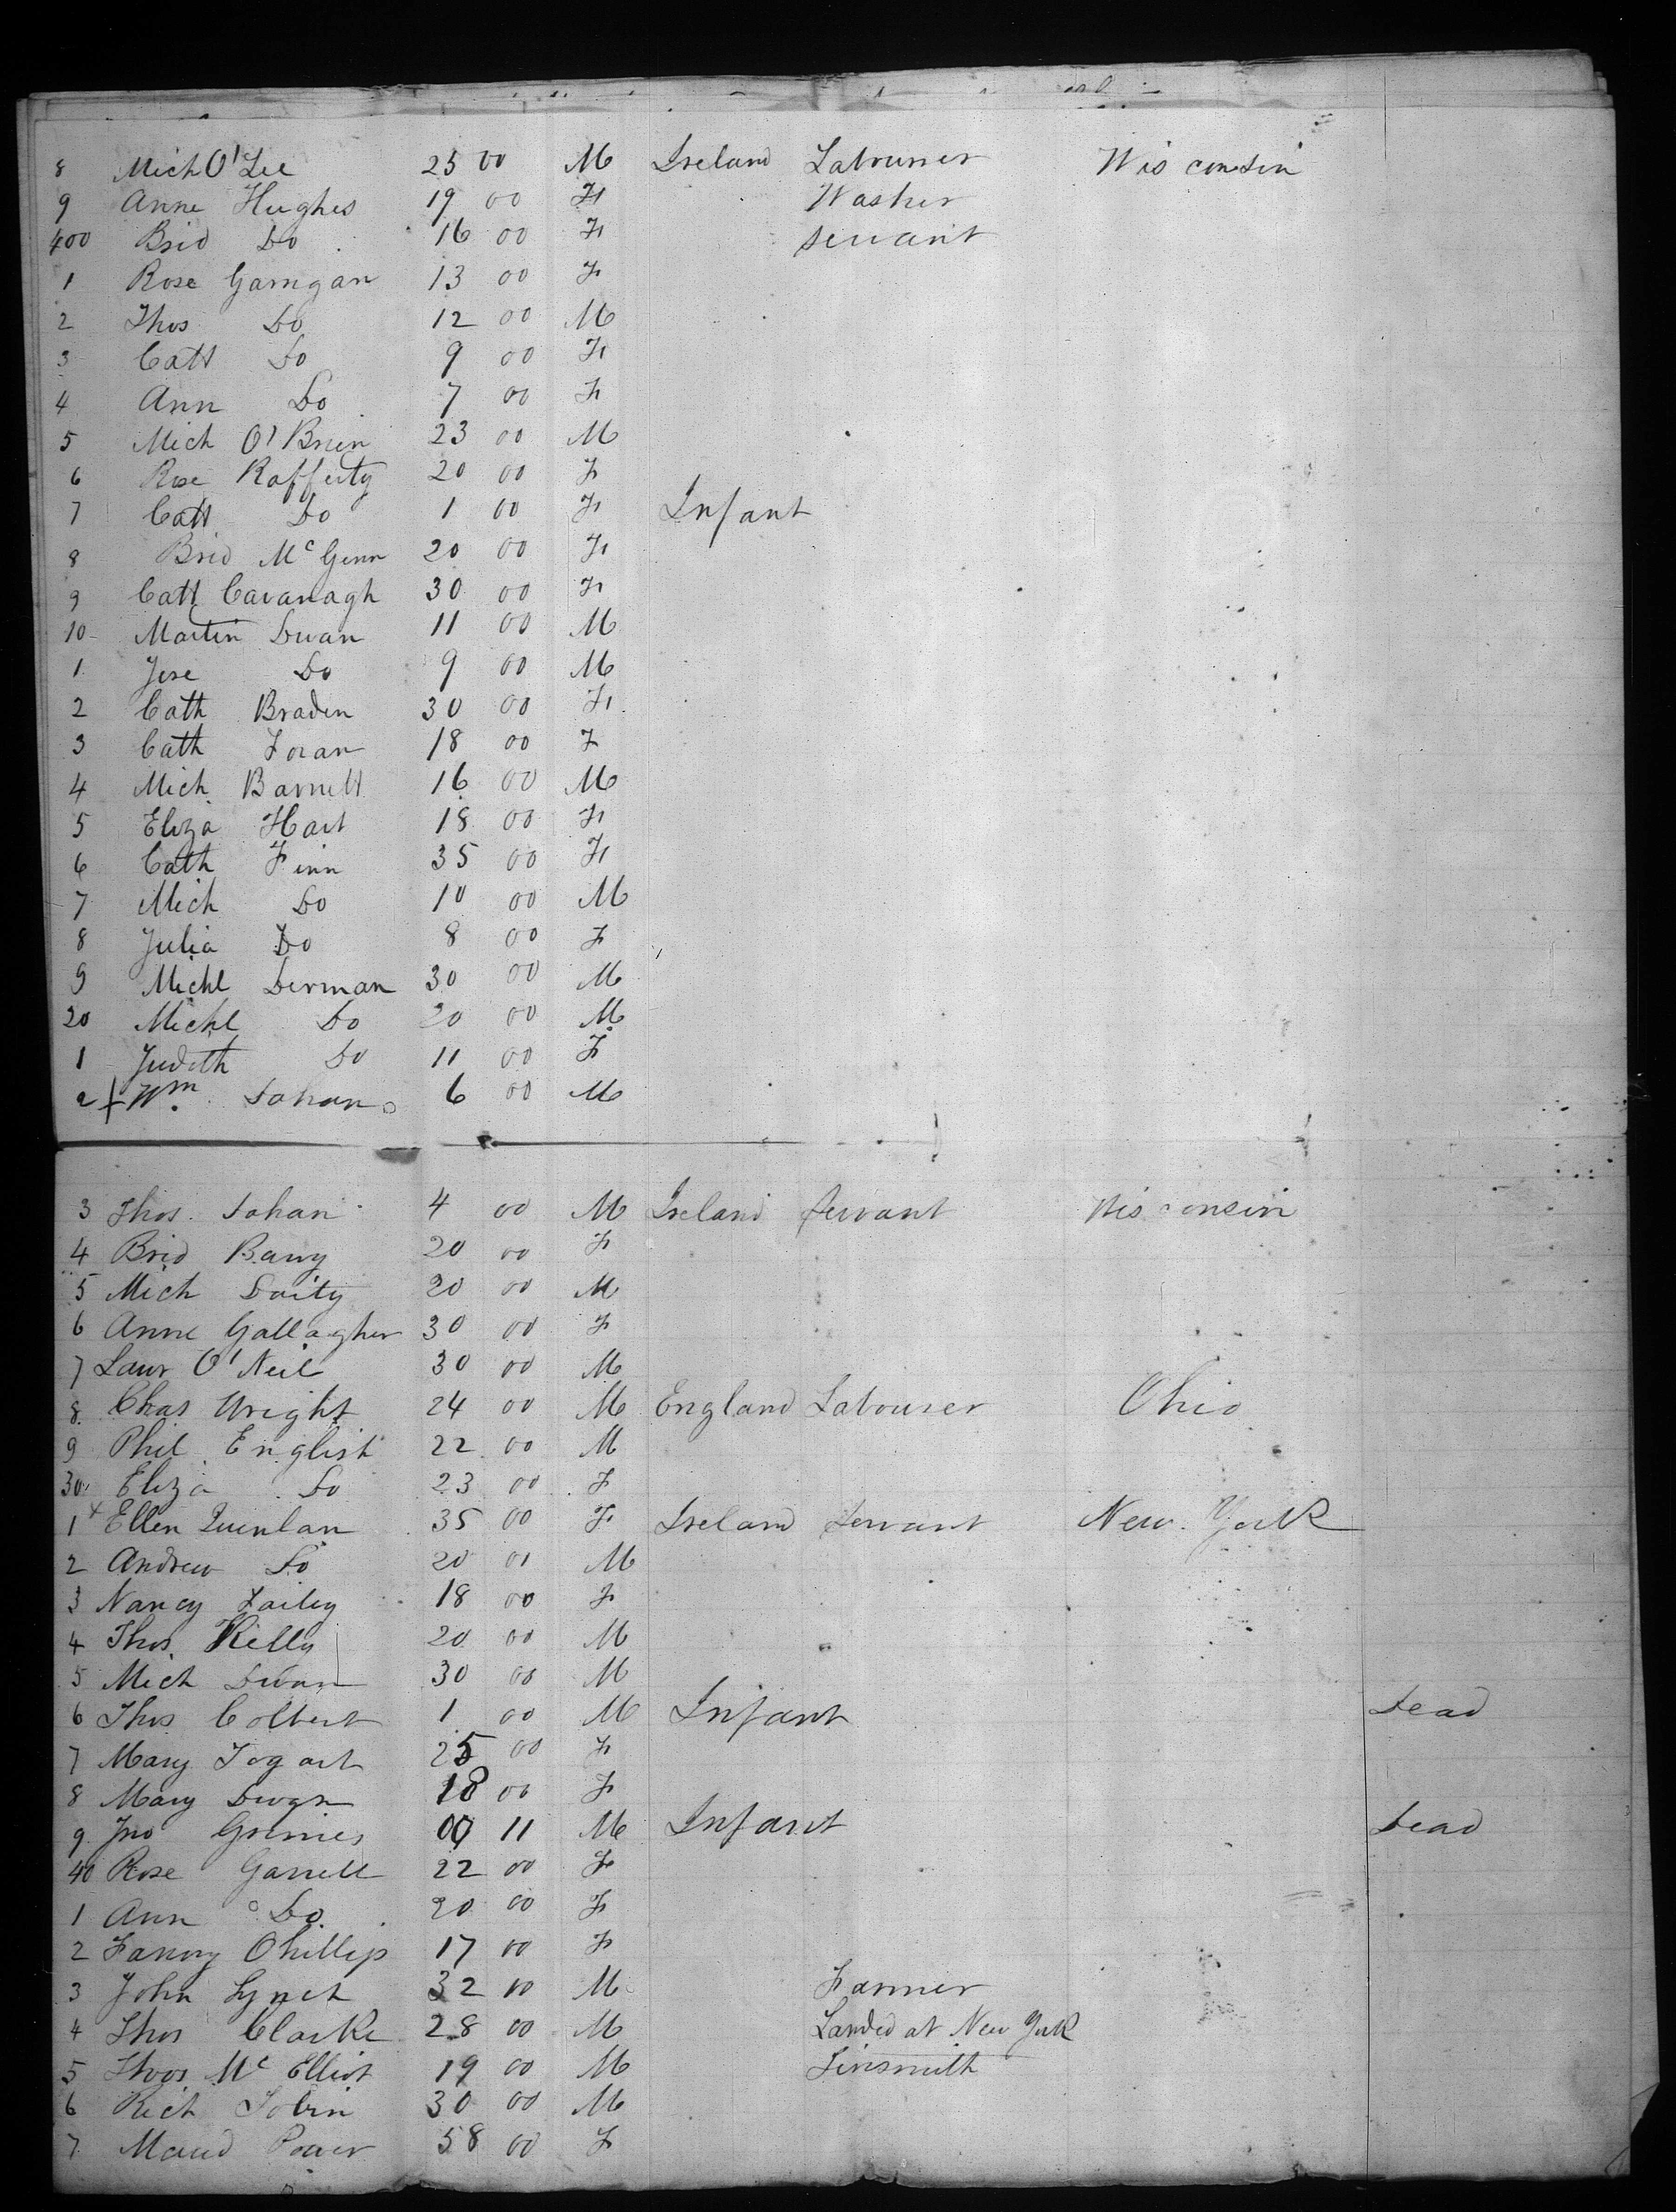 8 Mich O'Lee 25 00 M Ireland Labourer Wisconsin
9 Anne Hughes 19 00 F Washer
400 Brid Do 16 00 F servant
1 Rose Garrigan 13 00 F
2 Thos Do 12 00 M
3 Cath Do 9 00 F
4 Ann Do 7 00 F
5 Mich O'Brien 23 00 M
6 Rose Rafferty 20 00 F
7 Cath Do 1 00 F Infant
8 Brid McGinn 20 00 F
9 Cath Cavanagh 30 00 F
10 Martin Dwan 11 00 M
1 Do 9 00 M
2 Cath Braden 30 00 F
3 Cath Foran 18 00 F
4 Mich Barnett 16 00 M
5 Eliza Hart 18 00 F
6 Cath Finn 35 00 F
7 Mich Do 10 00 M
8 Julia Do 8 00 F
9 Michl Derman 30 00 M
20 Michl Do 20 00 M
1 Judith Do 11 00 F
2 + Wm. Dohan 6 00 M
3 Thos. Dohan 4 00 M Ireland Servant Wisconsin
4 Brid Barry 20 00 F
5 Mich Doity 20 00 M
6 Anne Gallagher 30 00 F
7 Laur O'Neil 30 00 M
8 Chas Wright 24 00 M England Labourer Ohio
9 Phil English 22 00 M
30 Eliza Do 23 00 F
1 + Ellen Quinlan 35 00 F Ireland Servant New York
2 Andrew Do 20 00 M
3 Nancy Dailey 18 00 F
4 Thos. Kelly 20 00 M
5 Mich Dwan 30 00 M
6 Thos Colbert 1 00 M Infant Dead
7 Mary Fogart 25 00 F
8 Mary Dwan 18 00 F
9 Jno Grimes 00 11 M Infant Dead
40 Rose Garrell 22 00 F
1 Ann Do 20 00 F
2 Fanny Phillips 17 00 F
3 John Lynch 32 00 M Farmer
4 Thos Clarke 28 00 M Landed at New York
5 Thos McElliot 19 00 M Tinsmith
6 Rich Tobin 30 00 M
7 Maud Power 58 00 F